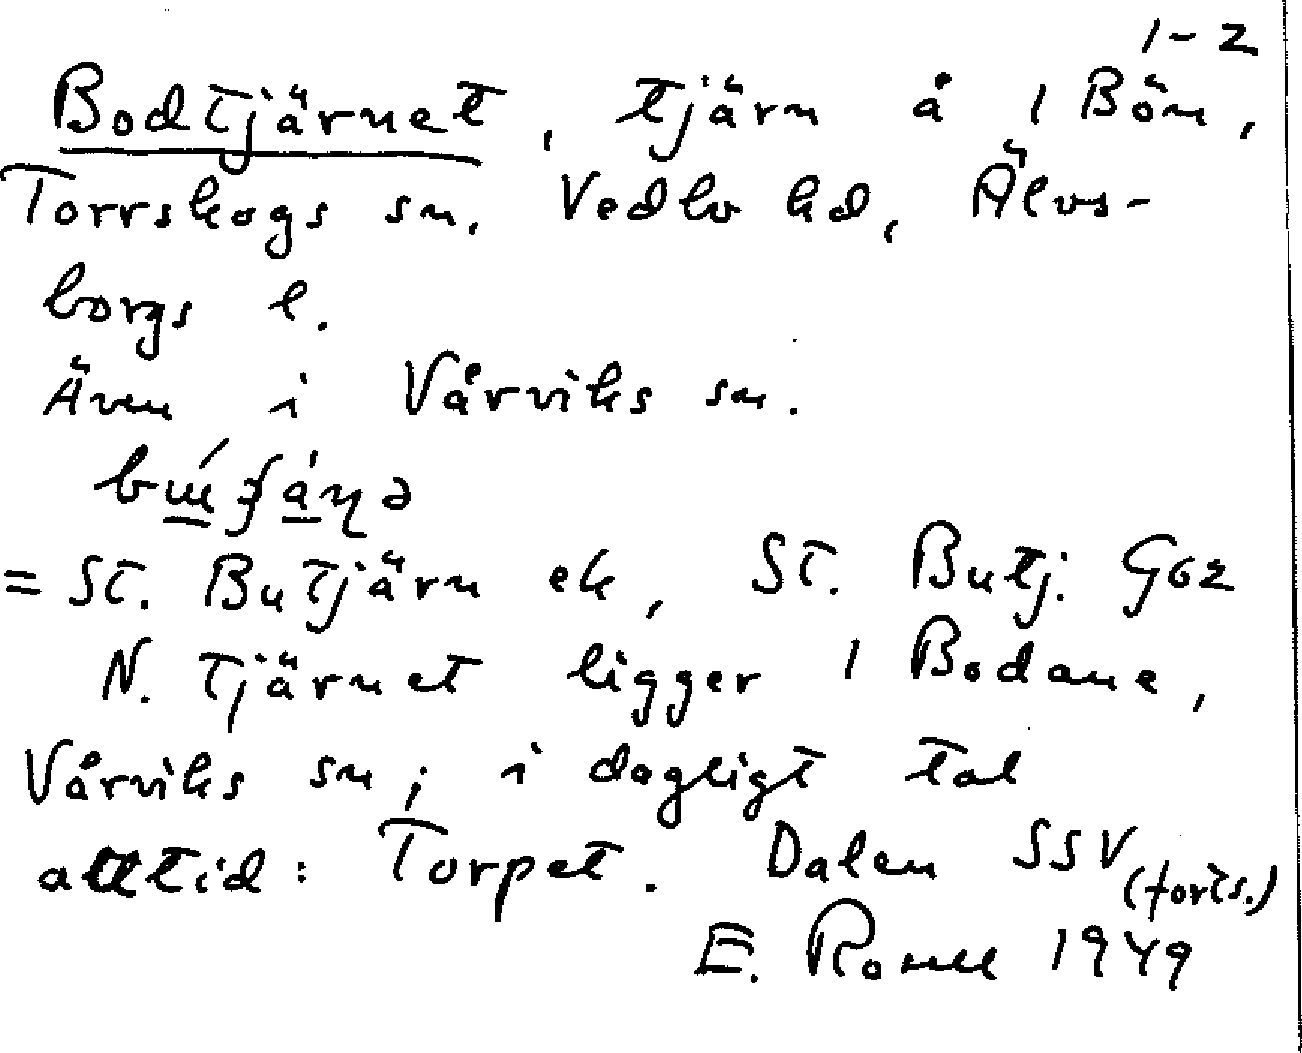 1-2
Bodtjärnet, tjärn å 1 Bön,
Torrskogs sn. Vedbo hd, Älvs-
borgs l.
Även i Vårviks sn.
= St. Butjärn ek, St. Butj. G62
N. Tjärnet ligger 1 Bodane,
Vårviks sn; i dagligt tal
alltid: Torpet. Dalen SSV
(forts.)
E. Rosell 1949